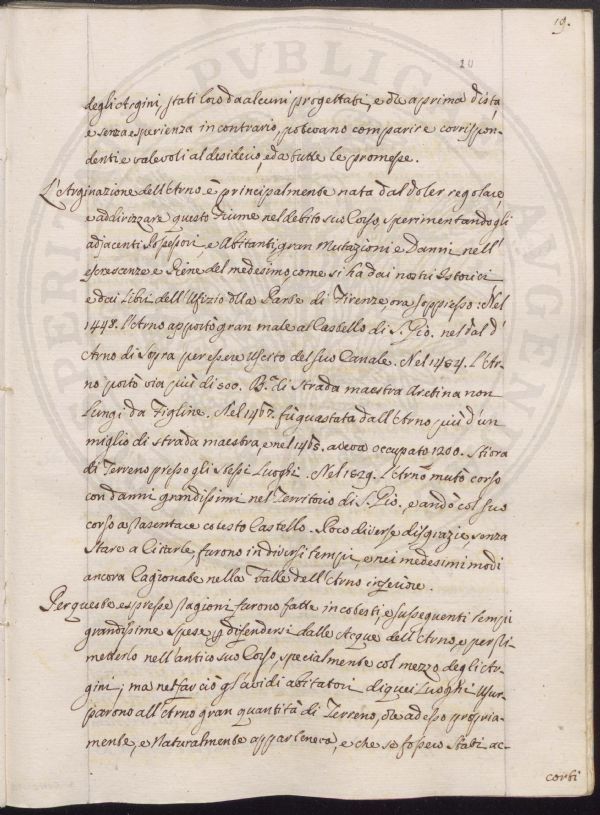 19.
degli Argini, stati loro da alcuni progettati, e che a prima vista,
e senza esperienza in contrario, potevano comparire corrispon-
denti e valevoli al desiderio, e da tutte le promesse.
L'Arginazione dell'Arno è principalmente nata dal voler regolare,
e addirizzare questo Fiume nel debito suo Corso, sperimentandogli
adjacenti Possessori, e Abitanti gran Mutazioni e Danni nell'
escrescenze e Piene del medesimo, come si ha dai nostri Istorici
e dai Libri dell'Ufizio della Parte di Firenze, ora soppresso: Nel
1448. l'Arno apportò gran male al Castello di S. Gio. nel Val d'
Arno di Sopra per essere Uscito del suo Canale. Nel 1454. l'Ar-
no portò via più di 500. Bra. di Strada maestra Aretina non
Lungi da Figline. Nel 1467. fù guastata dall'Arno più d'un
miglio di strada maestra, e nel 1468. aveva occupato 1200. Stiora
di Terreno presso gli Stessi Luoghi. Nel 1529. l'Arno mutò corso
con danni grandissimi nel Territorio di S. Gio. e andò col suo
corso a rasentare cotesto Castello. Poco diverse disgrazie, senza
Stare a Citarle, furono in diversi tempi, e nei medesimi modi
ancora Cagionate nella Valle dell'Arno inferiore.
Per queste espresse ragioni furono fatte in cotesti, e susseguenti tempi
grandissime spese p. difendersi dalle Acque dell'Arno, e per ri-
metterlo nell'antico suo Corso, specialmente col mezzo degli Ar-
gini; ma nel far ciò gl'avidi abitatori di quei Luoghi Usur-
parono all'Arno gran quantità di Terreno, che adesso propria-
mente, e Naturalmente apparteneva, e che se fossero Stati ac-
corti
PUBLICAE